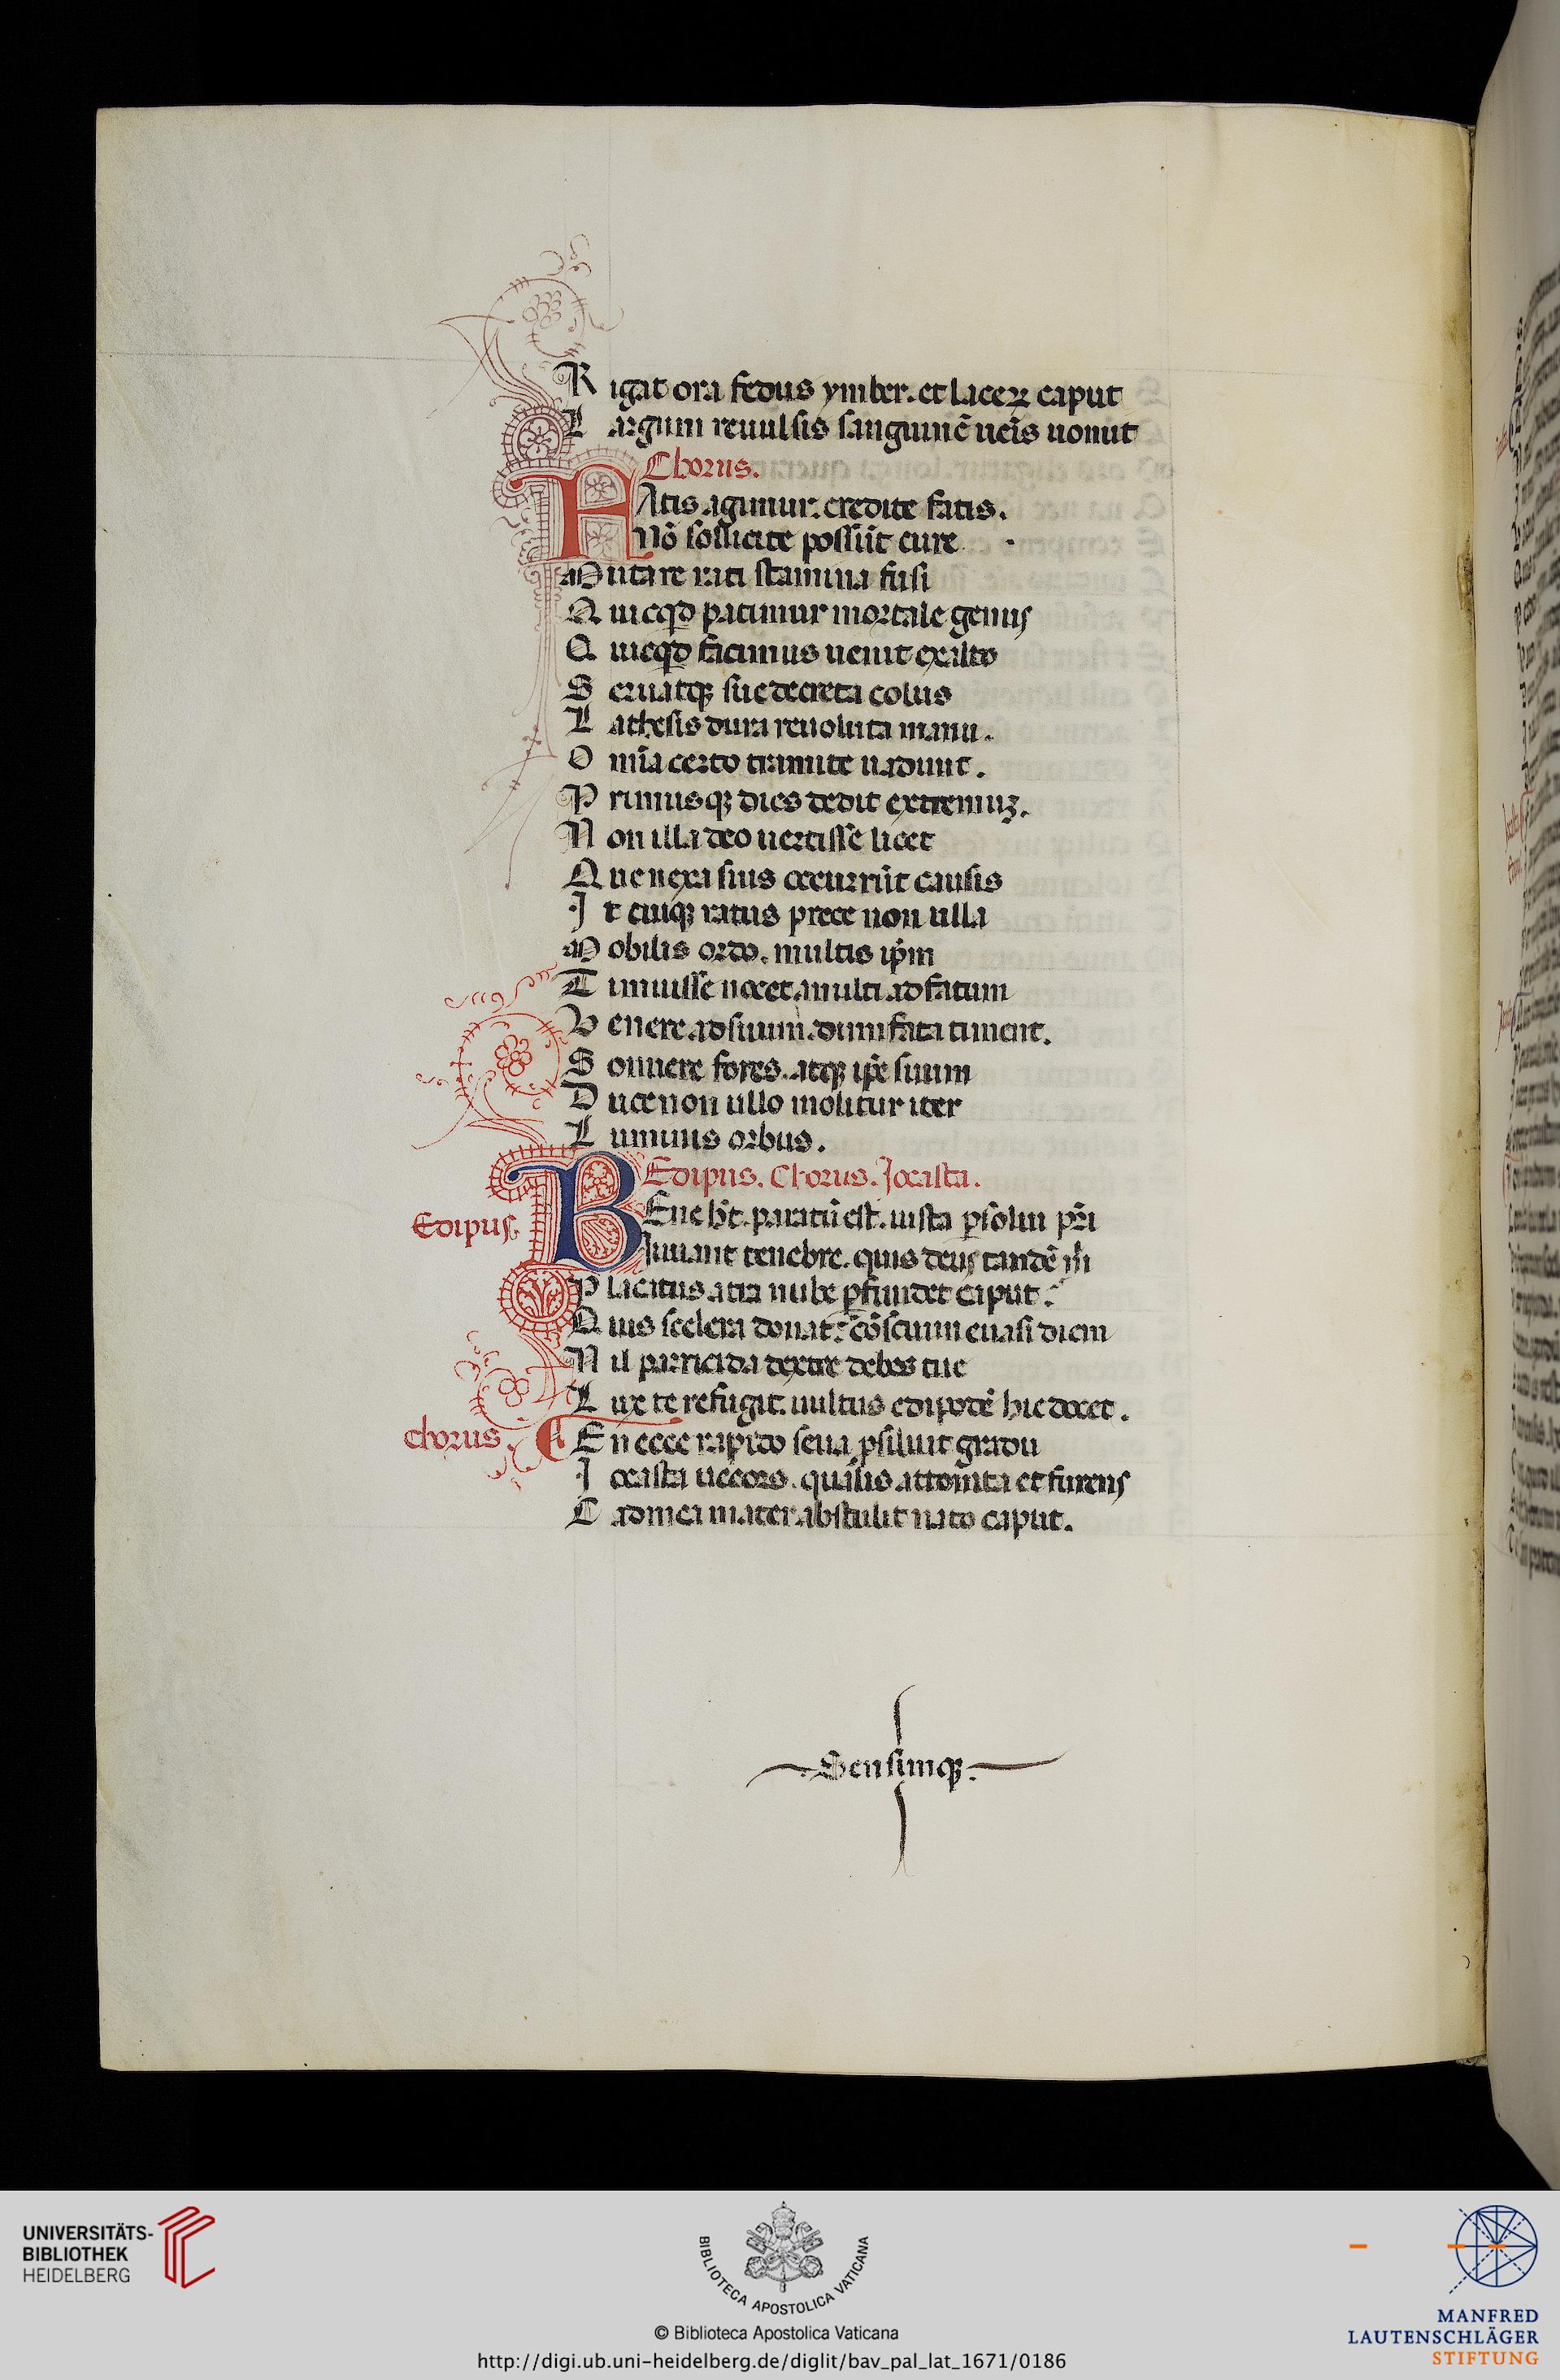 Rigat ora fedus ymber. et lacerꝝ caput
Largum reuulsis sanguinē ueīs uomit
Chorus.
FAtis agimur. credite fatis.
Nō sollicite possūt cure
Mutare rati stamina fusi
Quicqͥd patimur mortale genus
Quicqͥd facimus uenit ex alto
Seruatqꝫ sue decreta colus
Lathesis dura reuoluta manu.
Omīa certo tramite uadunt.
Primusqꝫ dies dedit extremuꝫ.
Non illa deo uertisse licet
Que nexa suis occurrūt causis
It cuiqꝫ ratus prece non ulla
Mobilis ordo. multis ip̄m
Timuisse nocet. multi ad fatum
Venere ad suum. dum fata timent.
Sonuere fores. atqꝫ ip̄e suum
Duce non ullo molitur iter
Luminis orbus.
Edipus. Chorus. Jocasta.
Edipus.
BEne hꝫ̄t. paratū est. iusta ꝑsolui pr̄i
Iuuant tenebre. quis deus tandē m̄
Placitus atra nube ꝑfundet caput.
Quis scelera donat. cōscium euasi diem
Nil parricida dextre debes tue
Lux te refugit. uultus edipodē hic docet.
chorus.
En ecce rapido seua ꝓsiluit gradu
Jocasta uecors. qualis attonita et furens
Cadmea mater abstulit nato caput.
Sensimqꝫ.
UNIVERSITÄTS-
BIBLIOTHEK
HEIDELBERG
BIBLIOTECA APOSTOLICA VATICANA
© Biblioteca Apostolica Vaticana
http://digi.ub.uni-heidelberg.de/diglit/bav_pal_lat_1671/0186
MANFRED
LAUTENSCHLÄGER
STIFTUNG